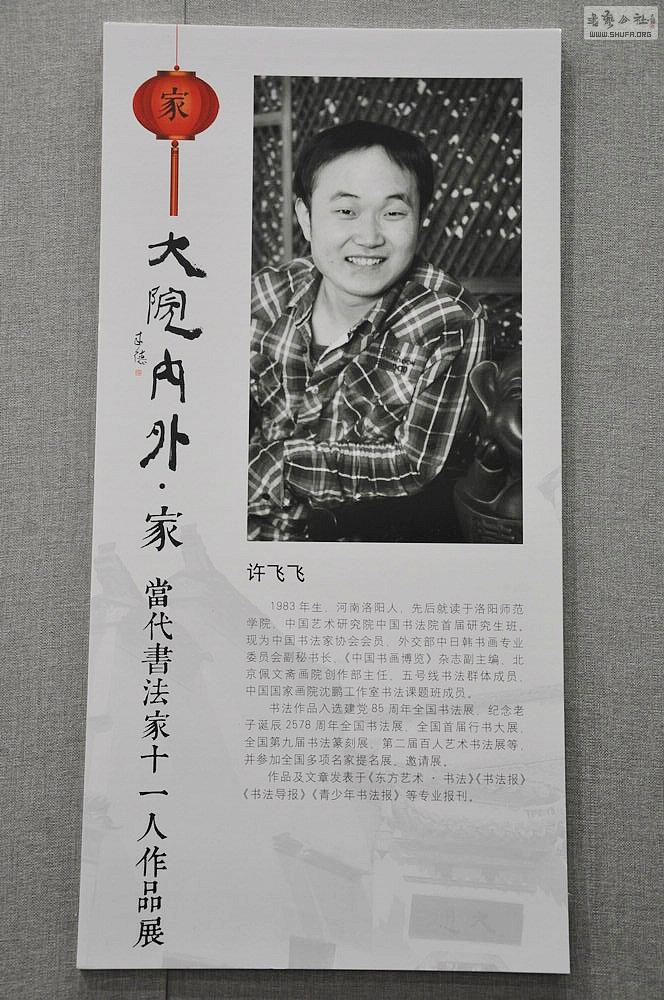 WWW.SHUFA.ORG
家
大院内外·家
當代書法家十一人作品展
许飞飞
1983年生，河南洛阳人，先后就读于洛阳师范
学院、中国艺术研究院中国书法院首届研究生班。
现为中国书法家协会会员，外交部中日韩书画专业
委员会副秘书长，《中国书画博览》杂志副主编，北
京佩文斋画院创作部主任，五号线书法群体成员，
中国国家画院沈鹏工作室书法课题班成员。
书法作品入选建党85周年全国书法展、纪念老
子诞辰2578周年全国书法展、全国首届行书大展、
全国第九届书法篆刻展、第二届百人艺术书法展等，
并参加全国多项名家提名展、邀请展。
作品及文章发表于《东方艺术·书法》《书法报》
《书法导报》《青少年书法报》等专业报刊。